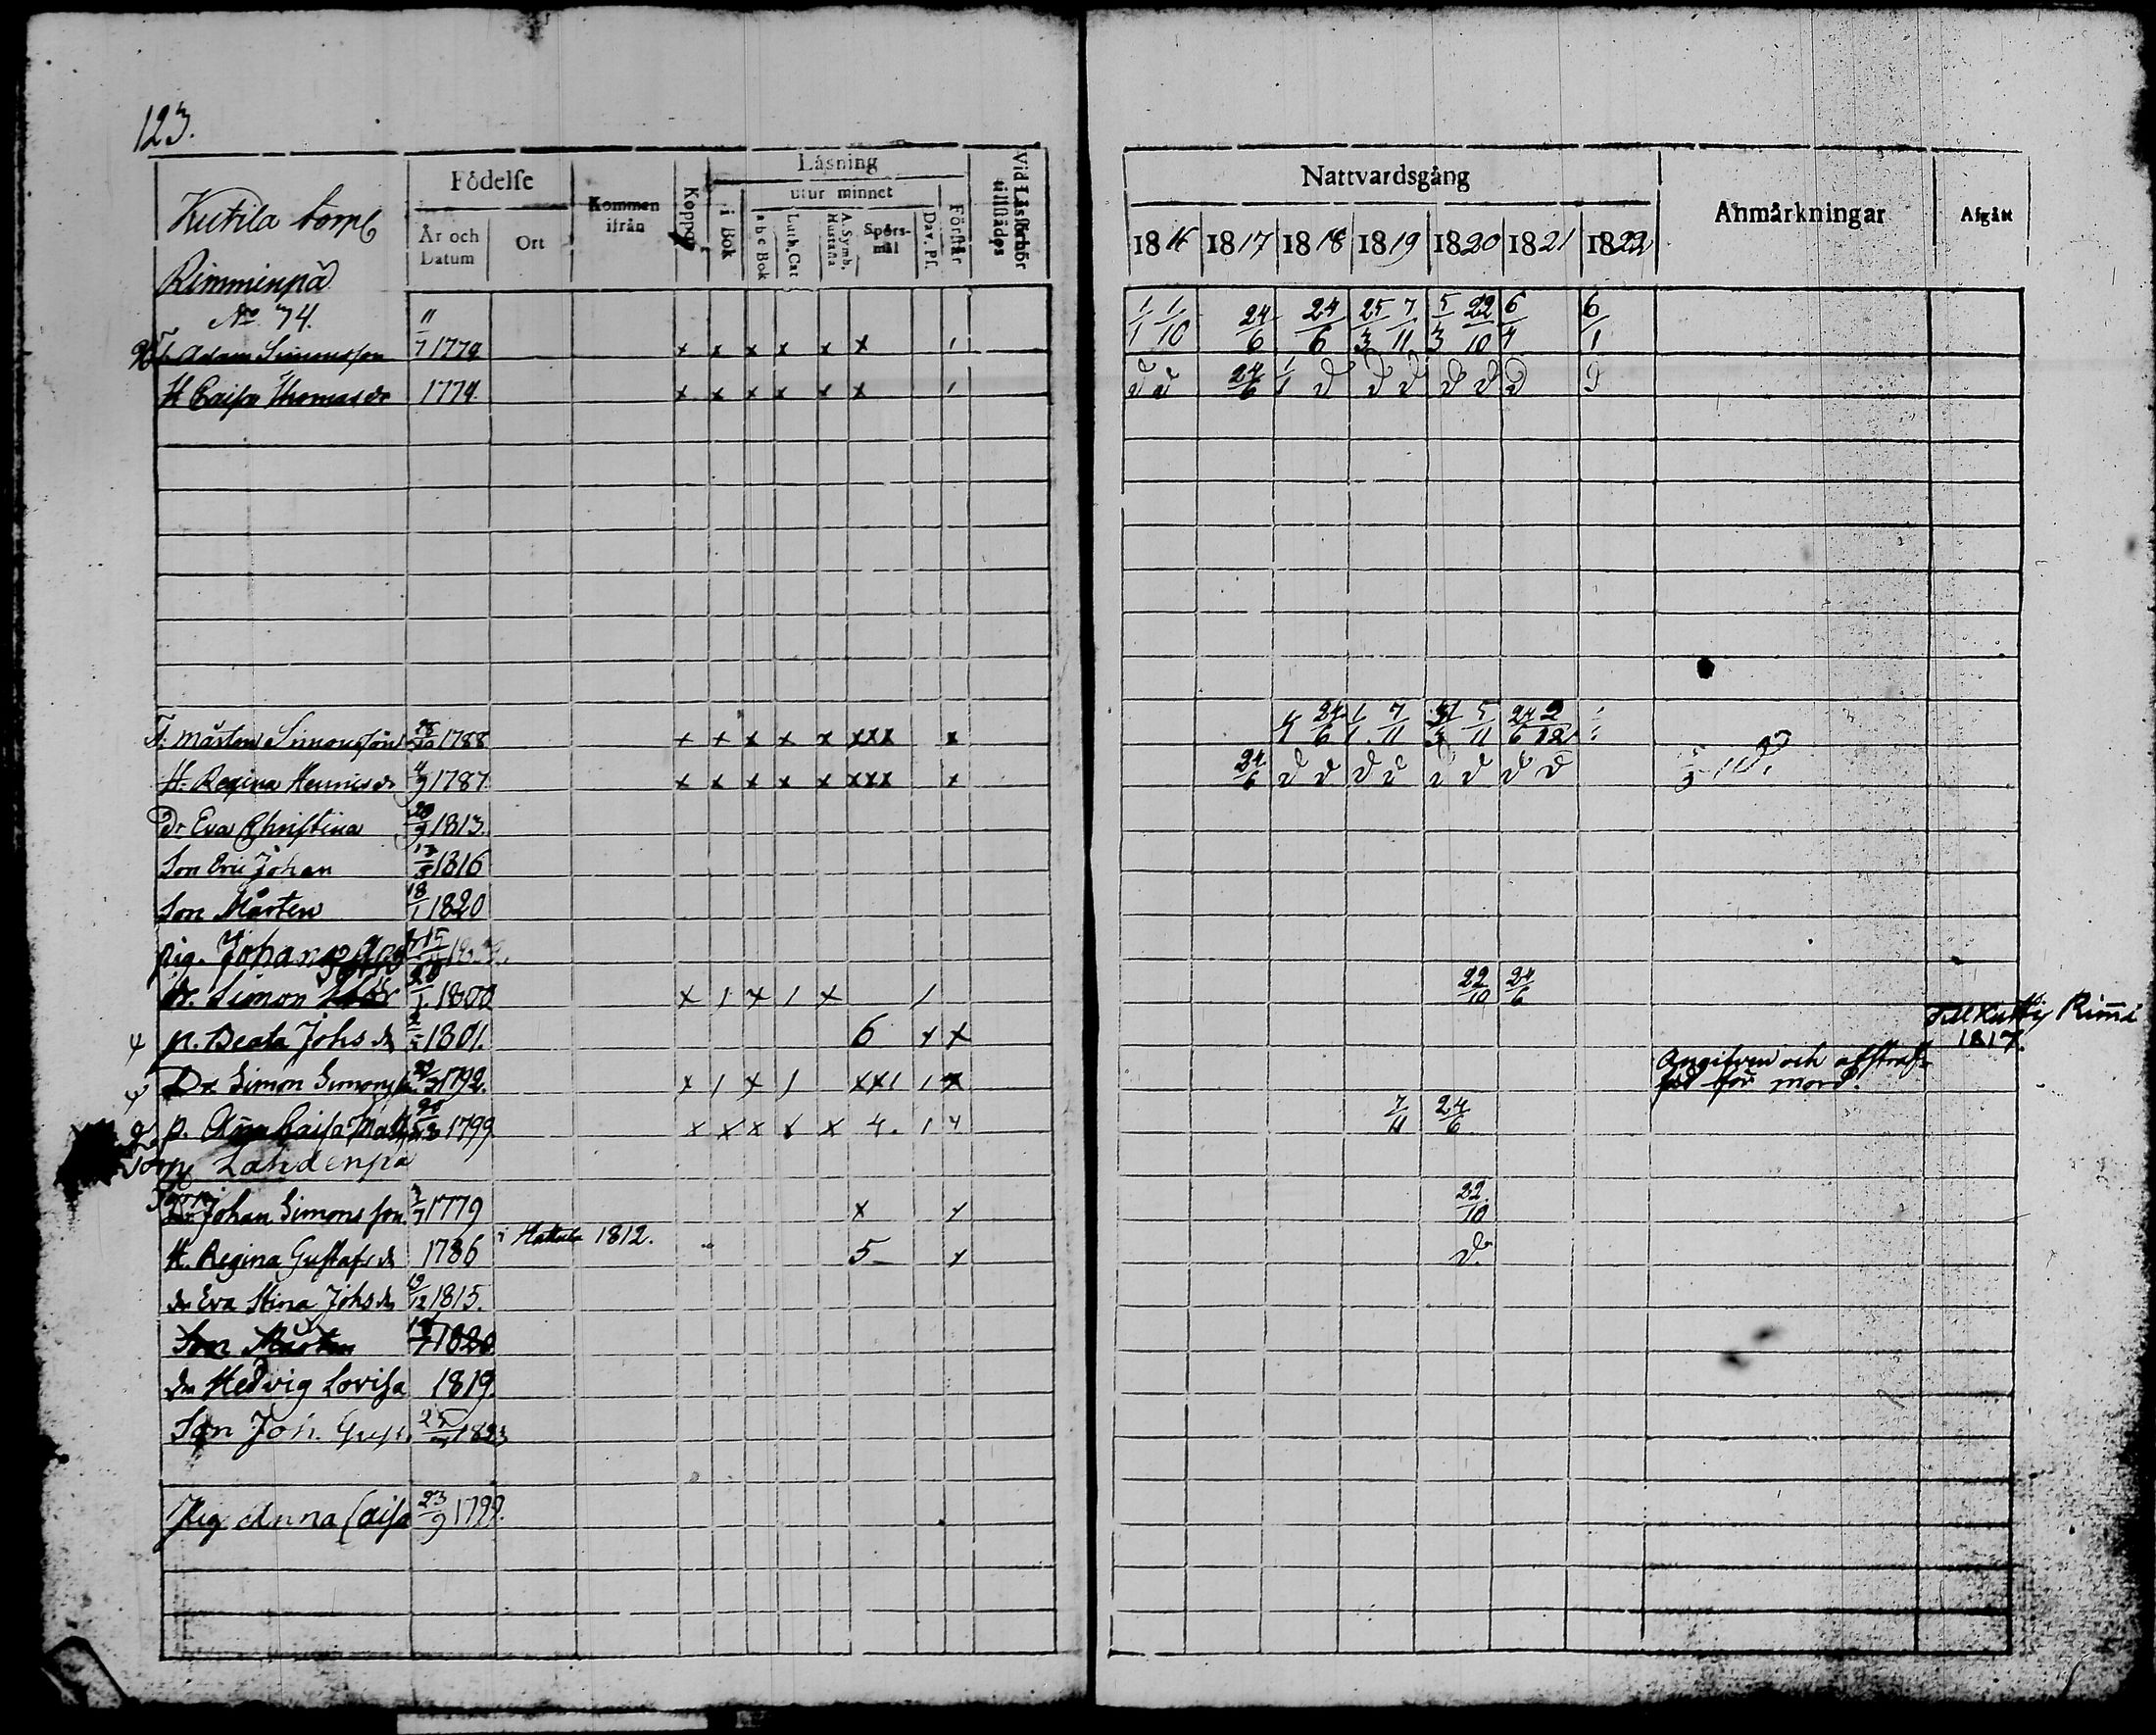 123.
Kutila torp
Födelse
Kommen ifrån
Koppor
Läsning
Vid Läsförhör tillstädes
Nattvardsgång
Anmärkningar
Afgått
År och Datum
Ort
i Bok
utur minnet
abc Bok
Luth. Cat
A. Symb. Hustafla
Spörsmål
Dav. Ps.
Förstår
1816 1817 1818 1819 1820 1821 1822
Rimminpä
No 74.
Adam Simonsson 11/7 1774 x x x x x x 1 1/1 1/10 24/6 24/6 25/3 7/11 5/3 22/10 6/4 6/1
H Caisa Thomasdr 1774. x x x x x x 1 d d 24/6 1/1 d d d d d d
Mårten Simonsson 1788 x x x x x xxx x 24/6 1/1 7/11 5/11 24/6 2/12
H. Regina Henricsdr 4/9 1787 x x x x x xxx x 24/6 d d d d d d d d
Dr Eva Christina 20/9 1813.
Son Eric Johan 1816
Son Mårten 18/1 1820
pig. Johan
dr. Simon 1800 x 1 x 1 x 1 22/10 24/6
p. Beata Johs dr 1801. 6 x x Till Rimi
1817.
Dr Simon Simonss 1792. x 1 x 1 xx1 1 x Angifven och afstraf-
fad för mord.
p. Anna Caisa Matts 1799 x x x x x 4. 1 7/11 24/6
Torp Lahdenpä
Johan Simonsson 1779 x 22/10
H. Regina Gustafsdr 1786 i Hattula 1812. 5 d.
dr Eva Stina Johsdr 19/12 1815.
Son Mårten 1820
dr Hedvig Lovisa 1819.
Son Joh. Gust. 1823
Pig Anna Caisa 23/9 1799.